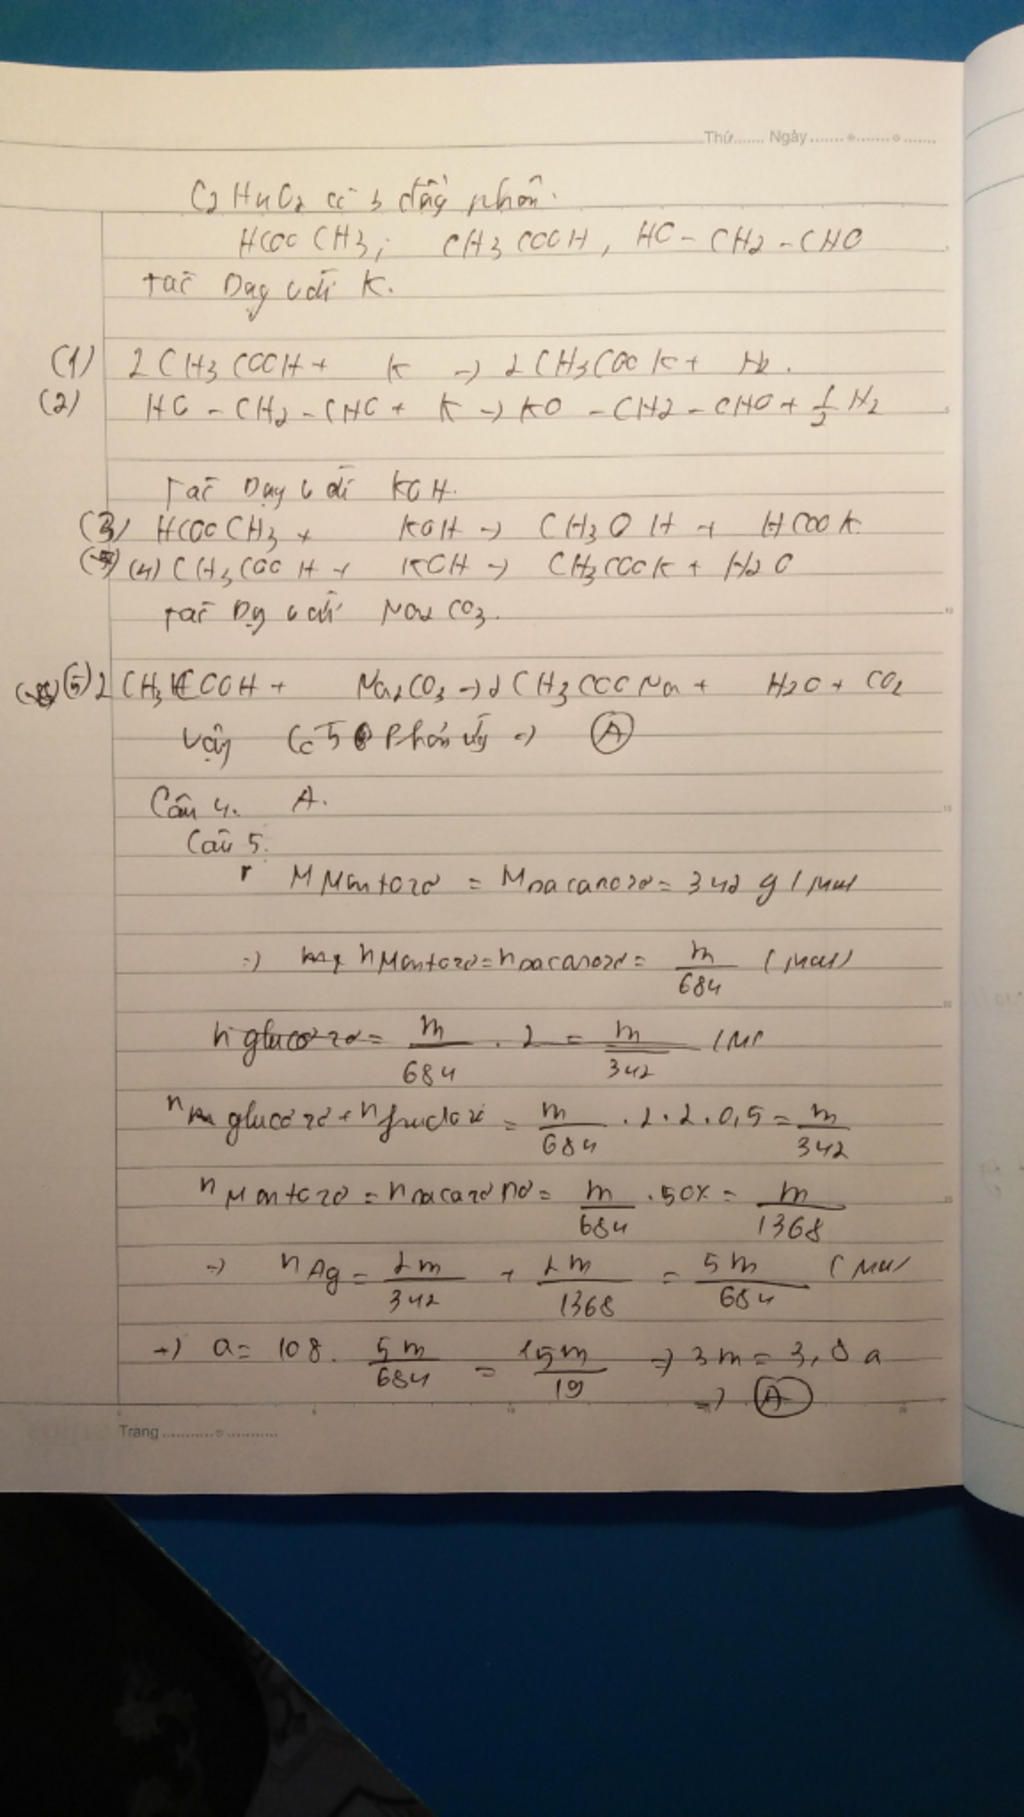 Thứ....... Ngày.......
C2H4O2 có 3 đồng phân.
HCOOCH3; CH3COOH, HO - CH2 - CHO
Tác Dụng với K.
(1) 2CH3COOH + K -> 2CH3COOK + H2.
(2) HO - CH2 - CHO + K -> KO - CH2 - CHO + 1/2 H2
Tác Dụng với KOH.
(3) HCOOCH3 + KOH -> CH3OH + HCOOK.
(4) CH3COOH + KOH -> CH3COOK + H2O
Tác Dg với Na2CO3.
(5) 2CH3COOH + Na2CO3 -> 2CH3COONa + H2O + CO2
Vậy Có 5 Phản ứng => A
Câu 4. A.
Câu 5.
M Mantozơ = M saccarozơ = 342 g/mol
=> n Mantozơ = n saccarozơ = m/684 (mol)
n glucozơ = m/684 . 2 = m/342 (m
n glucozơ + n fructozơ = m/684 . 2 . 2 . 0,5 = m/342
n Mantozơ = n saccarozơ = m/684 . 50% = m/1368
=> n Ag = 2m/342 + 2m/1368 = 5m/684 (mol
=> a = 108 . 5m/684 = 15m/19 => 3m = 3,8a
=> A
Trang.......